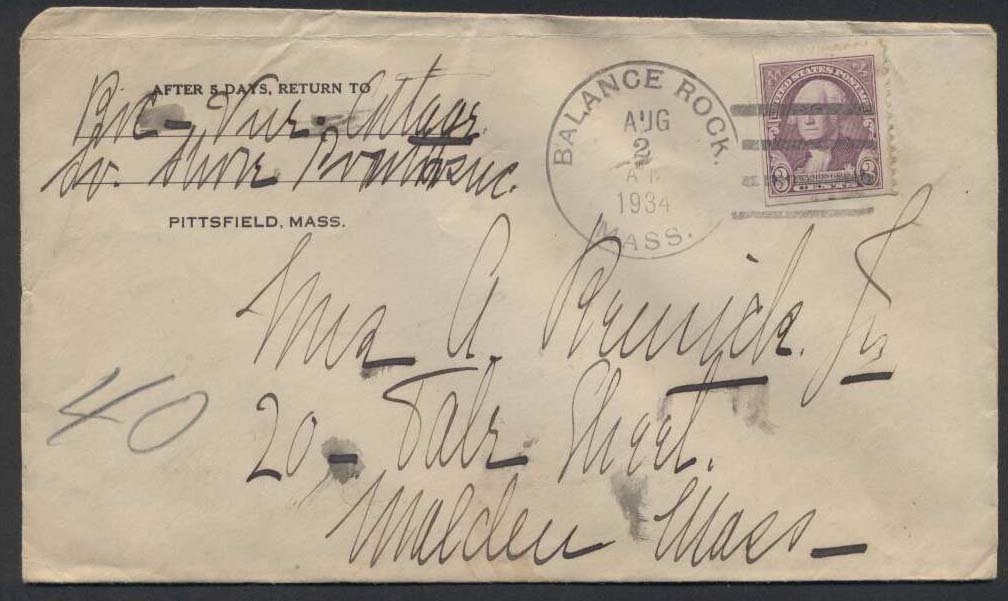 AFTER 5 DAYS, RETURN TO
Vue Cottage
So. Shore Pontoosuc.
PITTSFIELD, MASS.
BALANCE ROCK.
AUG
2
1934
MASS.
UNITED STATES POSTAGE
3 WASHINGTON 3
CENTS
Mrs A. Jr
20 - Street.
Malden Mass
40